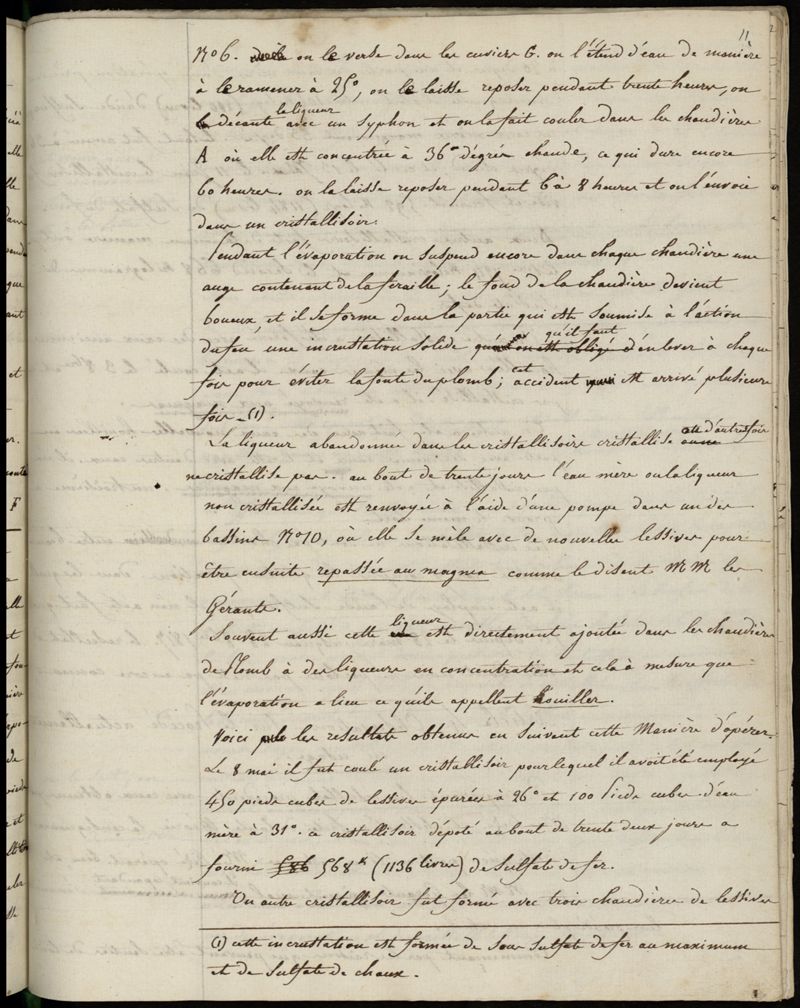 11
N°6. on le verse dans les cuviers G. on l'étend d'eau de manière
à le ramener à 25°, on le laisse reposer pendant trente heures, on
décante la liqueur avec un syphon et on la fait couler dans les chaudières
A où elle est concentrée à 36° dégrés chaude, ce qui dure encore
60 heures. on la laisse reposer pendant 6 à 8 heures et on l'envoie
dans un cristallisoir.
Pendant l'évaporation on suspend encore dans chaque chaudière une
auge contenant de la féraille; le fond de la chaudière devient
boueux, et il se forme dans la partie qui est soumise à l'action
du feu une incrustation solide qu'il faut enlever à chaque
fois pour éviter la fonte du plomb; cet accident est arrivé plusieurs
fois. (1).
La liqueur abandonnée dans les cristallisoirs cristallise et d'autres fois
ne cristallise pas. au bout de trente jours l'eau mère ou la liqueur
non cristallisée est renvoyée à l'aide d'une pompe dans un des
bassins N°10, où elle se mèle avec de nouvelles lessives pour
être ensuite repassée au magma comme le disent MM les
Gérants.
Souvent aussi cette liqueur est directement ajoutée dans les chaudières
de Plomb à des liqueurs en concentration et cela à mesure que
l'évaporation a lieu ce qu'ils appellent houiller.
Voici les resultats obtenus en suivant cette manière d'opérer.
Le 8 mai il fut coulé un cristallisoir pour lequel il avoit été employé
450 pieds cubes de lessives épurées à 26° et 100 Pieds cubes d'eau
mère à 31°. ce cristallisoir dépoté au bout de trente deux jours a
fourni 586 568 k (1136 livres) de Sulfate de fer.
Un autre cristallisoir fut formé avec trois chaudières de lessives
(1) cette incrustation est formée de Sous Sulfate de fer au maximum
et de Sulfate de chaux.